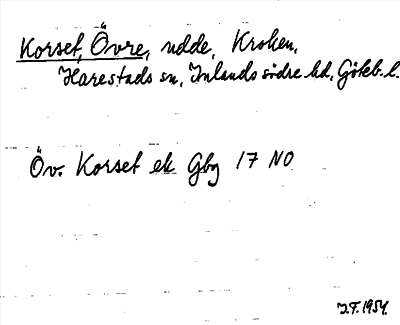 Korset, Övre, udde, Kroken,
Harestads sn, Inlands södre hd, Göteb. l.
Öv. Korset ek Gbg 17 NO
J.F. 1954.